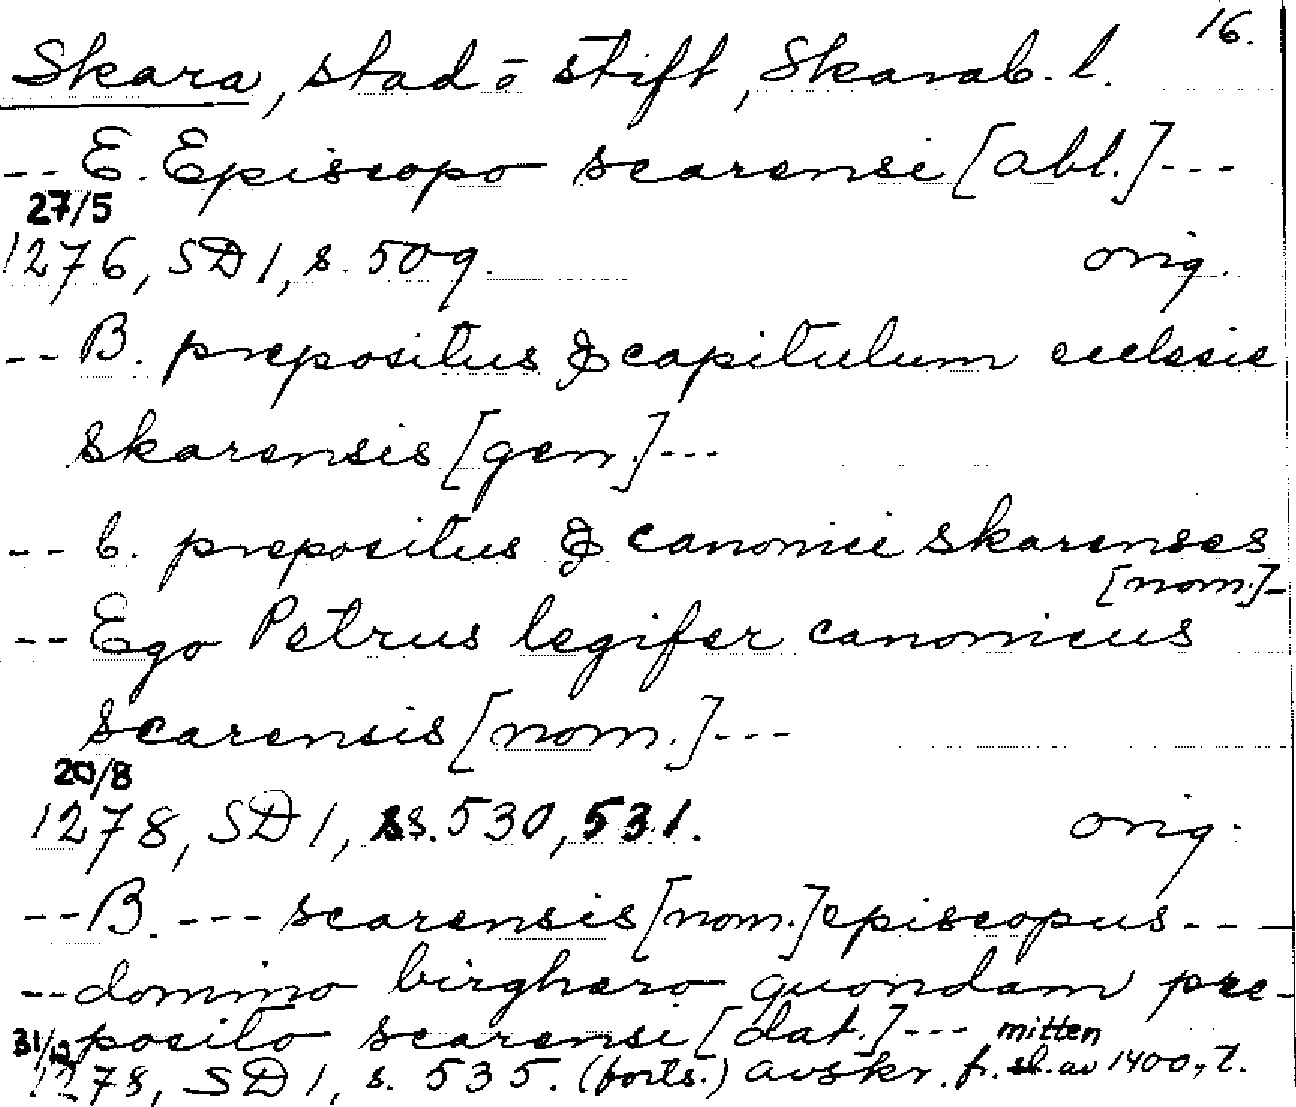 16.
Skara, stad o stift, Skarab. l.
-- E. Episcopo scarensi [abl.]---
27/5
1276, SD 1, s. 509. orig.
-- B. prepositus & capitulum ecclesie
skarensis [gen.]---
-- b. prepositus & canonici skarenses
[nom.]-
-- Ego Petrus legifer canonicus
scarensis [nom.]---
20/8
1278, SD 1, ss. 530, 531. orig.
-- B. --- scarensis [nom.] episcopus ---
-- domino birghero quondam pre-
posito scarensi [dat.]--- mitten
31/12
1278, SD 1, s. 535. (forts.) avskr. fr. sl. av 1400-t.